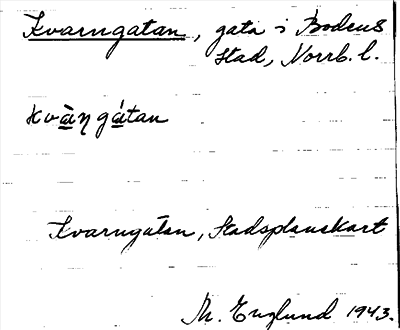 Kvarngatan, gata i Bodens
stad, Norrb. l.
kvàŋgátan
Kvarngatan, Stadsplanekart
M. Englund 1943.